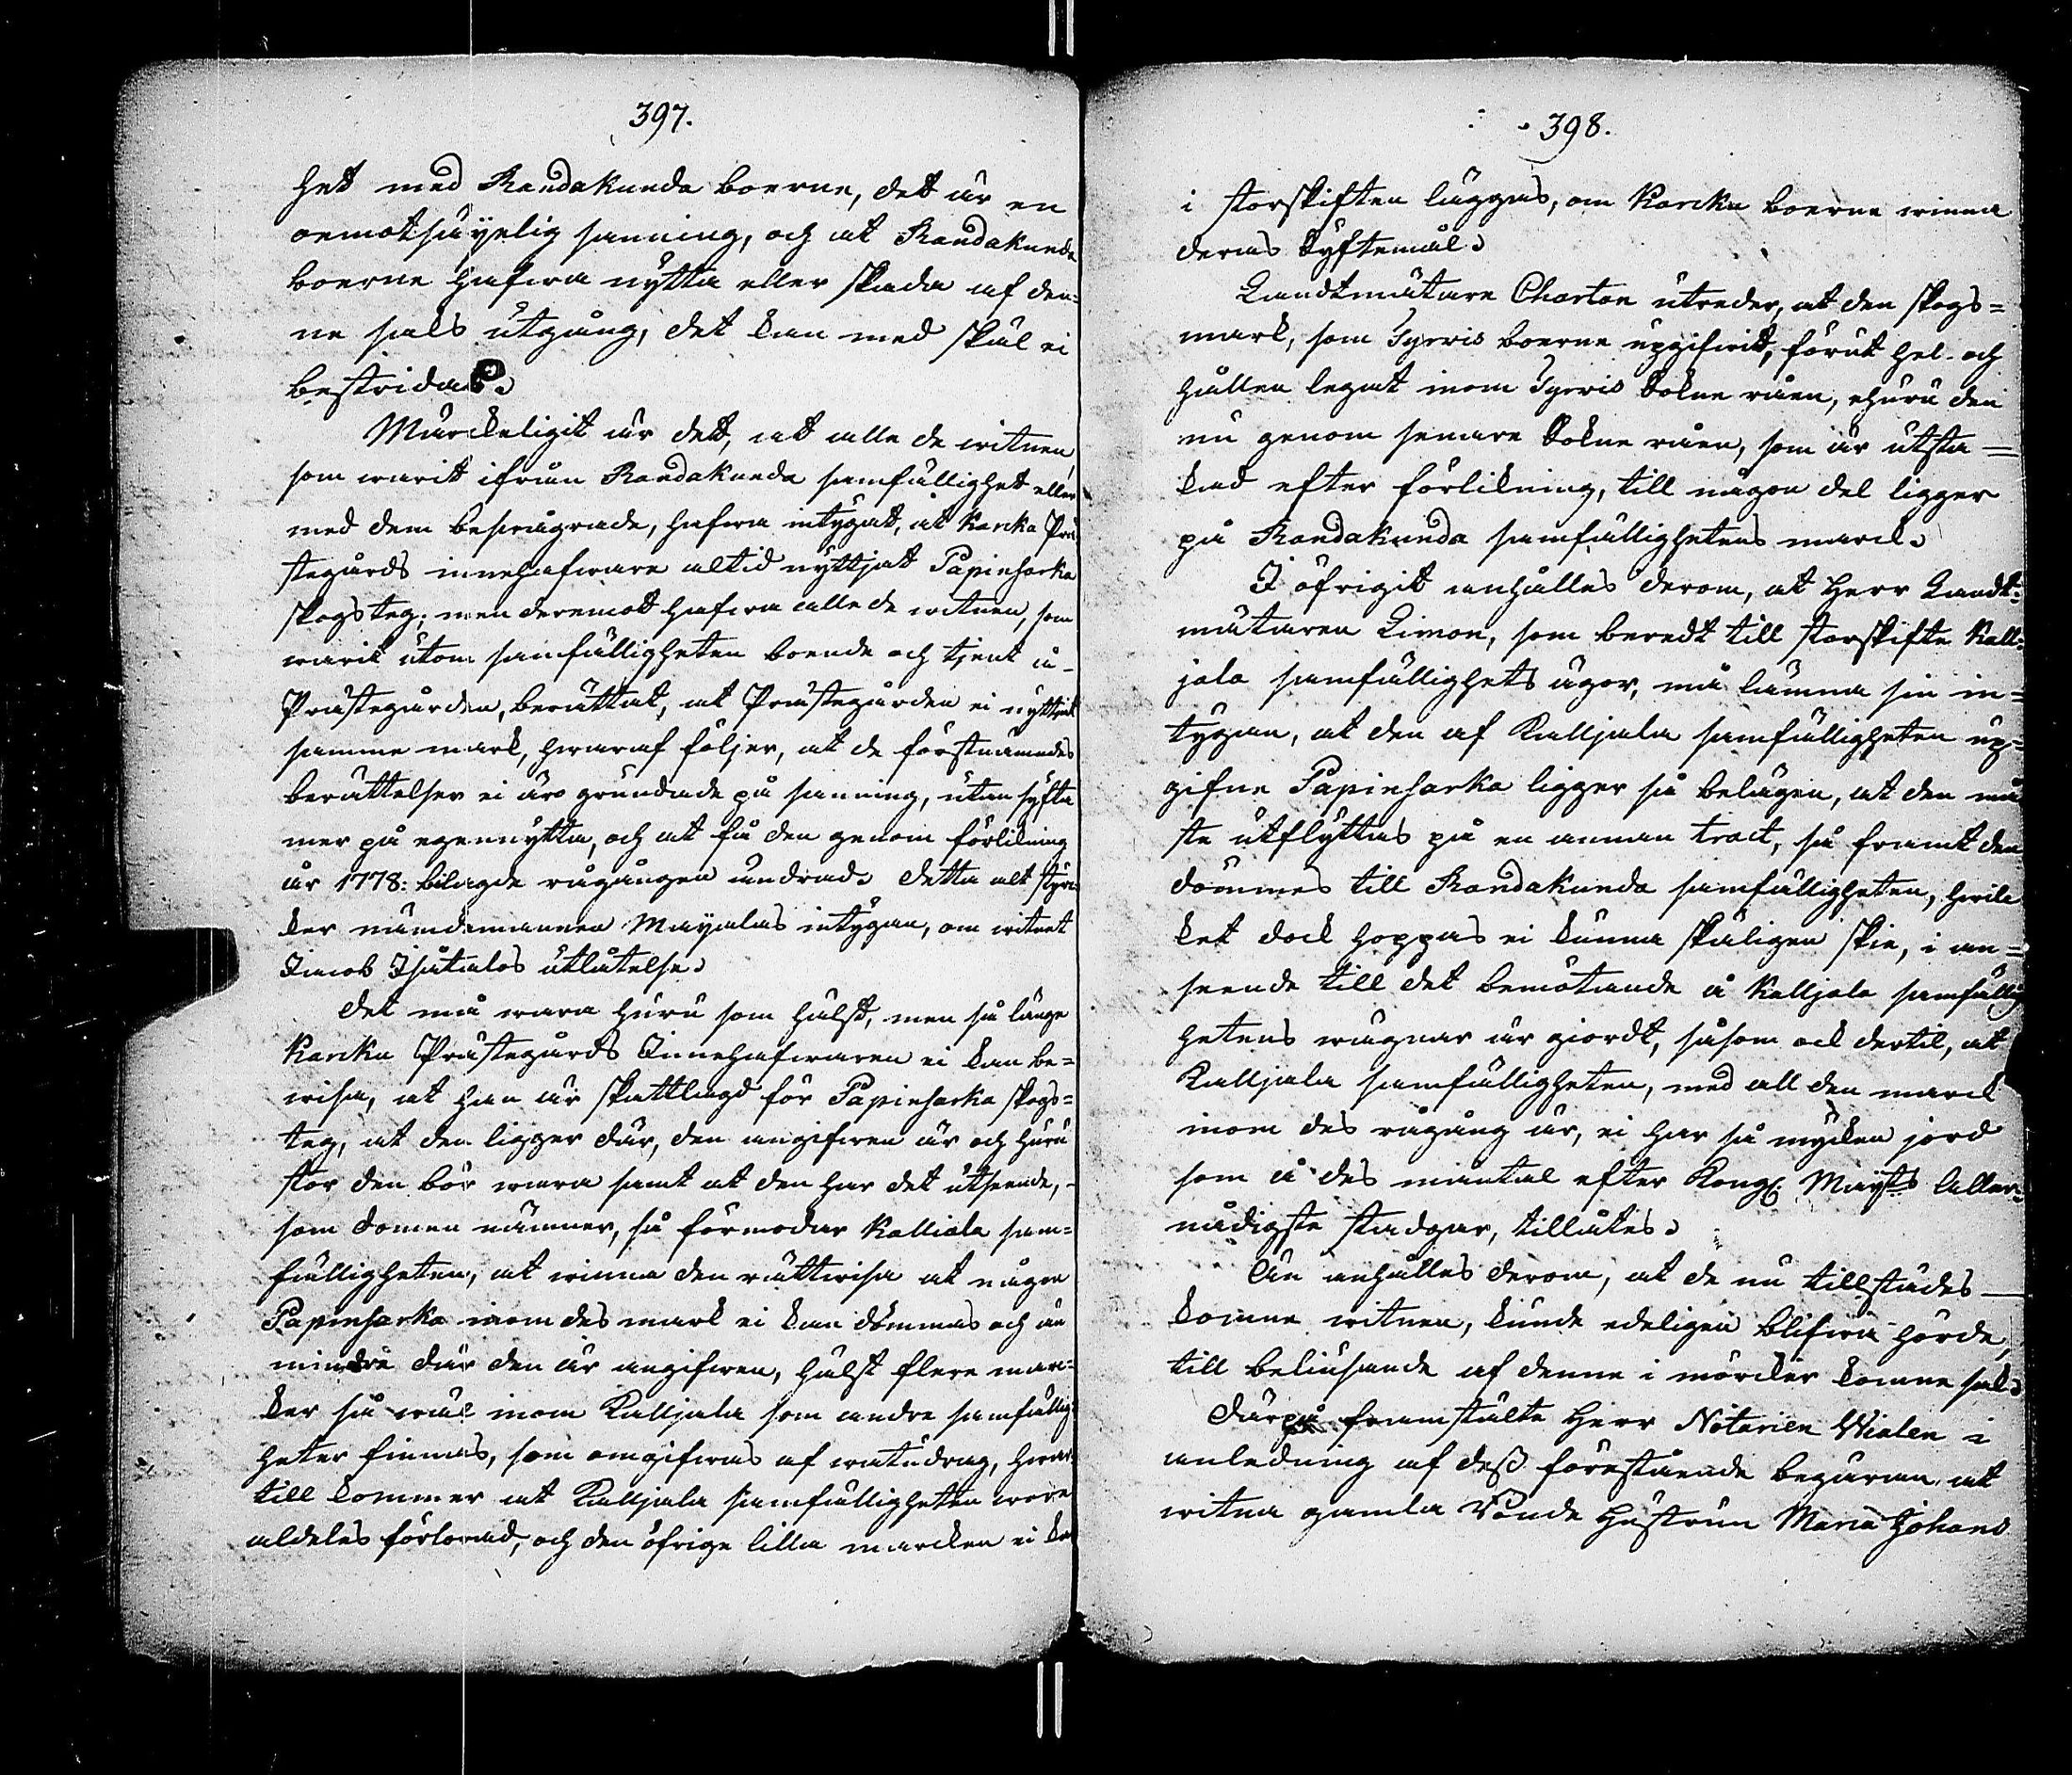 397.
het med Randakunda boerne, det är en
oemotsäyelig sanning, och at Randakunda
boerne hafwa nytta eller skada af den=
ne saks utgång, det kan med skäl ei
bestridas.
Märckeligit är det, at alla de witnen,
som warit ifrån Randakunda samfällighet eller
med dem beswågrade, hafwa intygat, at Karcku Prä
stegårds innehafware altid nyttjat Papinsarka
skogsteg; men deremot hafwa alla de witnen, som
warit utom samfälligheten boende och tjent i
Prästegården, berättat, at Prästegården ei nyttjat
samma mark, hwaraf följer, at de förstnämndes
berättelser ei äro grundade på sanning, utan syfta
mer på egennytta, och at få den genom förlikning
år 1778: bilagde rågången ändrad. Detta alt styr=
ker nämdemannen Mayalas intygan, om witnet
Jacob Isätalos utlåtelse.
Det må wara huru som hälst, men så länge
Karcku Prästegårds Innehafwaren ei kan be=
wisa, at han är skattlagd för Papinsarka skogs=
teg, at den ligger där, den angifwen är och huru
stor den bör wara samt at den har det utseende,
som domen nämner, så förmodar Kalliala sam=
fälligheten, at winna den rättwisa at någon
Papinsarka inom des mark ei kan dömmas och än
mindre där den är angifwen, hälst flere marc=
ker så wäl inom Kalljala som andre samfällig=
heter finnas, som omgifwas af watudrag, hwar=
till kommer at Kalljala samfälligheten wore
aldeles förlorad, och den öfrige lilla marcken ei kan
398.
i storskiften läggas, om Karcku boerne winna
deras Syftemål.
Landtmätare Charton utreder, at den skogs=
mark, som Tyrwis boerne upgifwit, förut hel och
hållen legat inom Tyrwis Sokne råen, ehuru den
nu genom senare Sokne råen, som är utsta=
kad efter förlikning, till någon del ligger
på Randakunda samfällighetens marck.
I öfrigit anhålles derom, at Herr Landt=
mätaren Limon, som beredt till storskifte Kall=
jala samfällighets ägor, må lämna sin in=
tygan, at den af Kalljala samfälligheten up=
gifne Papinsarka ligger så belägen, at den må
ste utflyttas på en annan tract, så framt den
dömmes till Randakunda samfälligheten, hwil
ket dock hoppas ei kunna skäligen skie, i an=
seende till det bemötande å Kalljala samfällig
hetens wägnar är giordt, såsom ock dertil, at
Kalljala samfälligheten, med all den marck
inom des rågång är, ei har så mycken jord
som å des mantal efter Kongl. Mayts Aller=
nådigste stadgar, tillåtes.
Än anhålles derom, at de nu tillstädes
komne witnen, kunde edeligen blifwa hörde,
till beliusande af denne i mörcker komne sak.
Därpå framstälte Herr Notarien Wialen i
anledning af dess förestående begäran at
witna gamla Hustrun Maria Johans